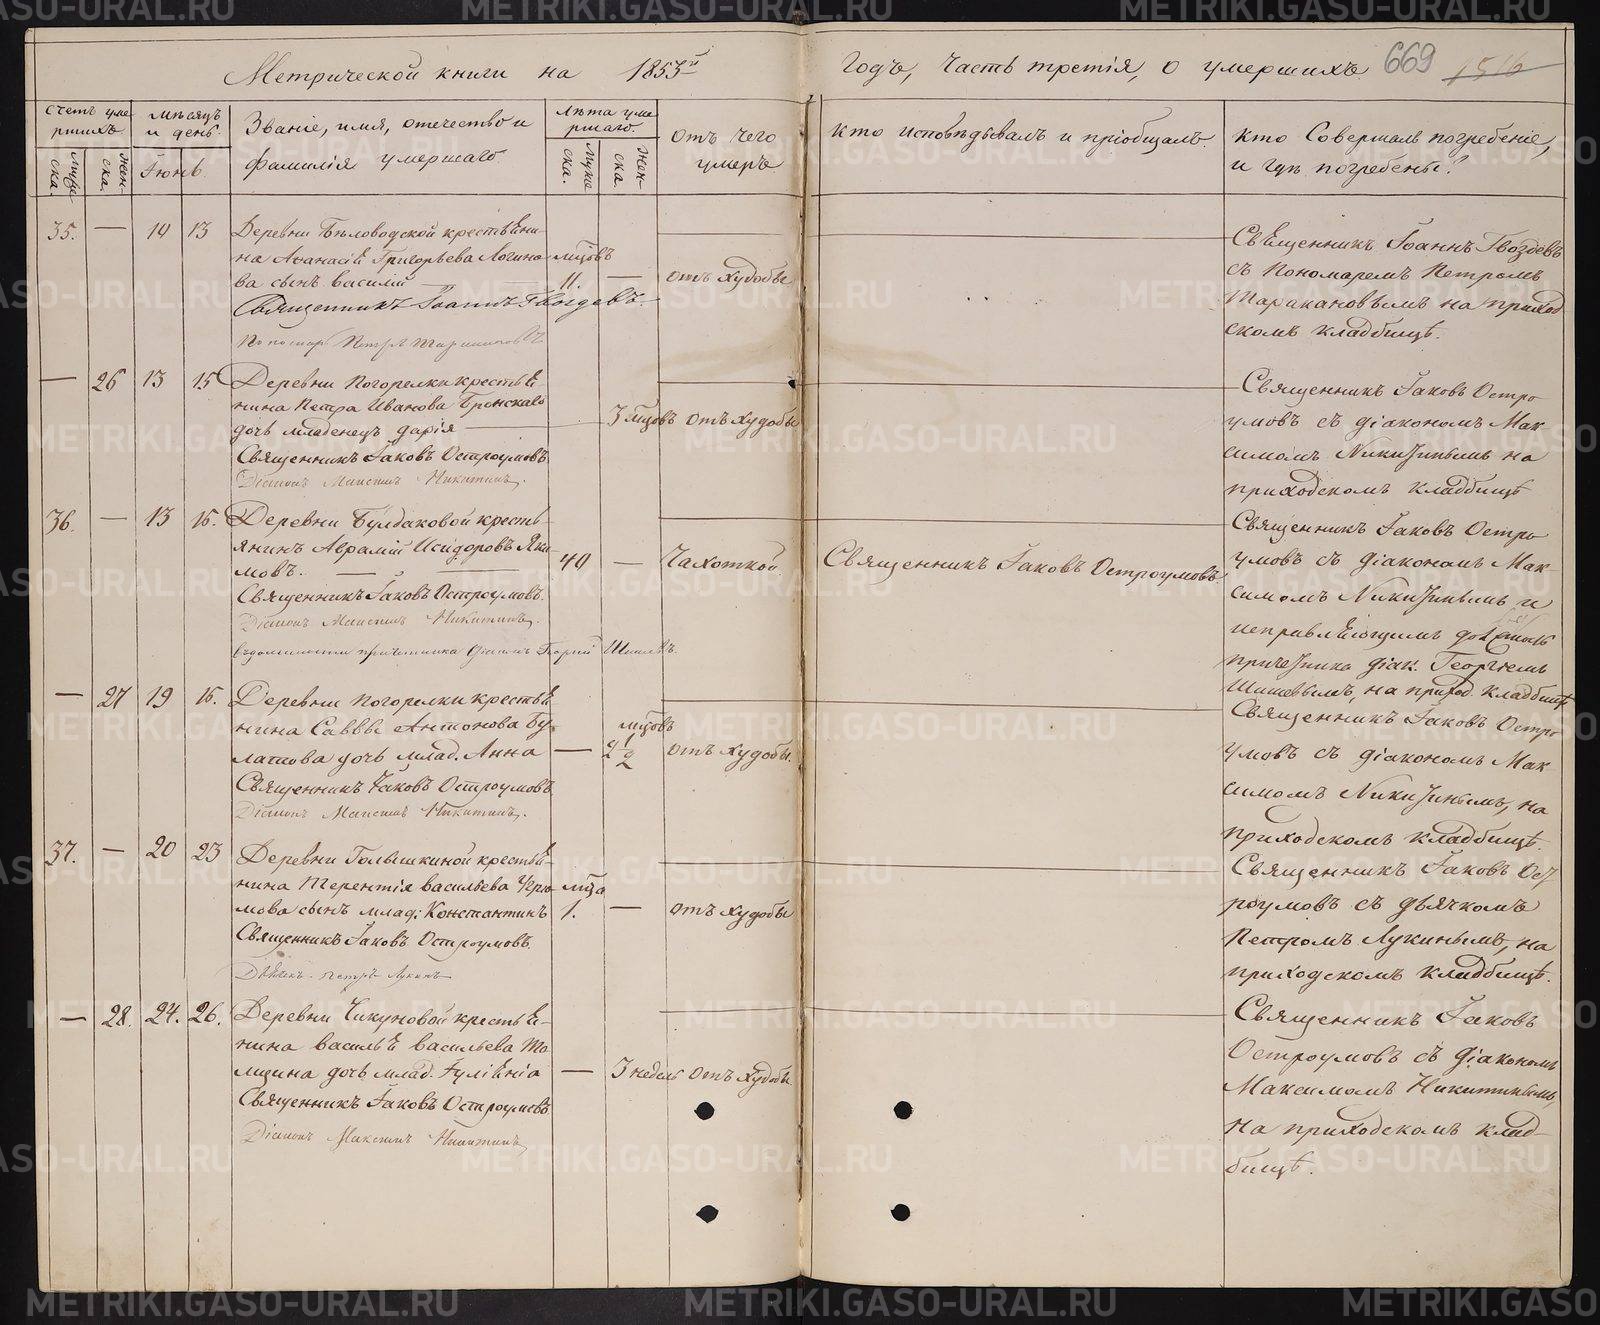 Метрической книги на 1853й
годъ, часть третія, о умершихъ.
669
1516
Счетъ умершихъ
Муже-
ска.
Жен-
ска.
Мѣсяцъ
и день.
Іюнь.
Званіе, имя, отечество и
фамилія умершаго
Лѣта уме-
ршаго.
Муже-
ска.
Жен-
ска.
отъ чего
умеръ
кто исповѣдывалъ и пріобщалъ.
кто Совершалъ погребеніе,
и гдѣ погребены?
35. — 14 13
Деревни Бѣловодской крестьяни-
на Аѳанасія Григорьева Логино-
ва сынъ василій
мцовъ
11. —
отъ худобы
Священникъ Іоаннъ Гвоздевъ.
Пономарь Петръ Таракановъ
Священникъ Іоаннъ Гвоздевъ
съ Пономаремъ Петромъ
Таракановымъ на приход-
скомъ кладбищѣ.
— 26 13 15
Деревни Погорелки крестья-
нина Петра Иванова Бронскаго
дочь младенецъ дарія
3 мцовъ
отъ худобы
Священникъ Іаковъ Остроумовъ
Діаконъ Максимъ Никитинъ.
Священникъ Іаковъ Остро-
умовъ съ діакономъ Мак-
симомъ Никитинымъ на
приходскомъ кладбищѣ
36. — 13 15.
Деревни Булдаковой кресть-
янинъ Аврамій Исидоровъ Яки-
мовъ.
40 —
Чахоткой
Священникъ Іаковъ Остроумовъ
Священникъ Іаковъ Остроумовъ.
Діаконъ Максимъ Никитинъ.
въдолжности причетника Діаконъ Георгій Шишевъ.
Священникъ Іаковъ Остро-
умовъ съ діакономъ Мак-
симомъ Никитинымъ и
исправляющимъ должность
причетника діак. Георгіемъ
Шишевымъ, на приход. кладбищѣ
— 27 19 15.
Деревни Погорелки крестья-
нина Саввы Антонова Бу-
латова дочь млад. Анна
мцовъ
— 2 1/2
отъ худобы.
Священникъ Іаковъ Остроумовъ
Діаконъ Максимъ Никитинъ.
Священникъ Іаковъ Остро-
умовъ съ діакономъ Мак-
симомъ Никитинымъ, на
приходскомъ кладбищѣ.
37. — 20 23
Деревни Голышкиной крестья-
нина Терентія васильева Угрю-
мова сынъ млад: Константинъ
мца
1. —
отъ худобы
Священникъ Іаковъ Остроумовъ.
Дьячекъ Петръ Лукинъ
Священникъ Іаковъ Ост-
роумовъ съ дьячкомъ
Петромъ Лукинымъ, на
приходскомъ кладбищѣ.
— 28. 24. 26.
Деревни Чикуновой крестья-
нина василья васильева То-
мщина дочь млад. Іуліанія
— 3 недель
отъ худобы
Священникъ Іаковъ Остроумовъ
Діаконъ Максимъ Никитинъ
Священникъ Іаковъ
Остроумовъ съ діакономъ
Максимомъ Никитинымъ,
на приходскомъ клад-
бищѣ.
METRIKI.GASO-URAL.RU